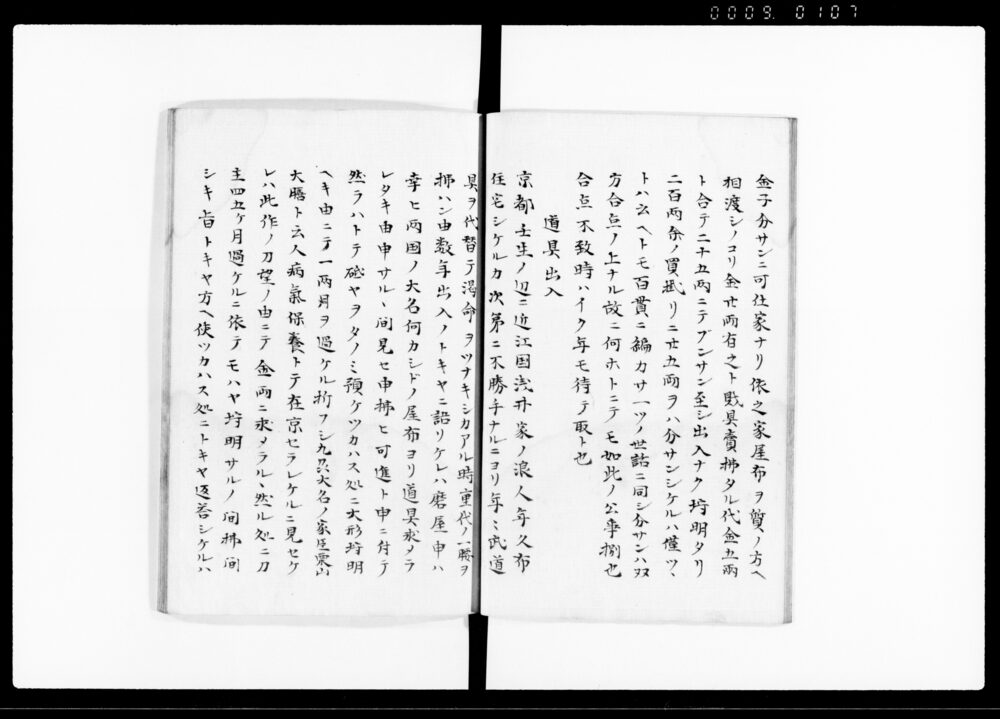 0009. 0107
金子分サンニ可仕家ナリ依之家屋布ヲ質ノ方ヘ
相渡シノコリ金廿両有之ト賎具賣拂タル代金五両
ト合テ二十五両ニテブンサン至シ出入ナク埒明タリ
二百両余ノ買掛リニ廿五両ヲハ分サンシケルハ僅ツヽ
トハ云ヘトモ百貫ニ編カサ一ツノ世話ニ同シ分サンハ双
方合点ノ上ナル故ニ何ホトニテモ如此ノ公事捌也
合点不致時ハイク年モ待テ取ト也
道具出入
京都壬生ノ辺ニ近江国浅井家ノ浪人年久布
住宅シケルカ次第ニ不勝手ナルニヨリ年ミ武道
具ヲ代替テ渇命ヲツナキシカアル時重代ノ一腰ヲ
拂ハン由数年出入ノトキヤニ語リケレハ磨屋申ハ
幸ヒ両国ノ大名何カシドノ屋布ヨリ道具求メラ
レタキ由申サルヽ間見セ申拂ヒ可進ト申ニ付テ
然ラハトテ砥ヤヲタノミ預ケツカハス処ニ大形埒明
ヘキ由ニテ一両月ヲ過ケル折フシ九州大名ノ家臣栗山
大膳ト云人病氣保養トテ在京セラレケルニ見セケ
レハ此作ノ刀望ノ由ニテ金両ニ求メラルヽ然ル処ニ刀
主四五ケ月過ケルニ依テモハヤ埒明サルノ間拂間
シキ旨トキヤ方ヘ使ツカハス処ニトキヤ返答シケルハ